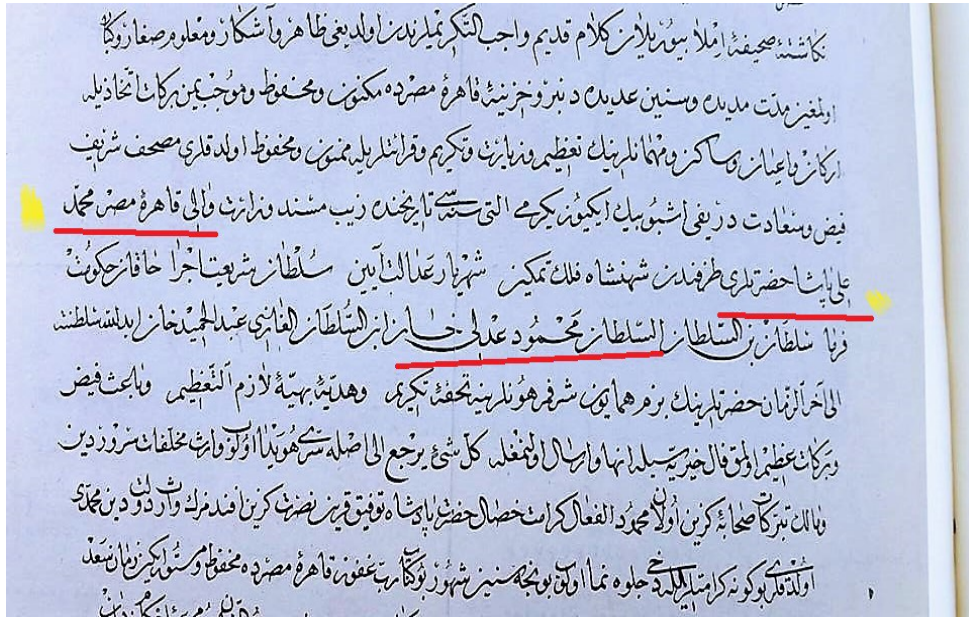 نكاشتهٔ صحيفهٔ املا بيوريلان كلام قديم واجب التكريملرندن اولديغى ظاهر وآشكار ومعلوم صغار وكبار
اولمغين مدت مديده وسنين عديده دنبرو خزينهٔ قاهرهٔ مصرده مكنون ومحفوظ وموجب يمن بركات اتخاذيله
اركان واعيان وساكن ومهمانلرينك تعظيم وزيارت وتكريم وقرائتلريله ممنون ومحفوظ اولدقلرى مصحف شريف
فيض وسعادت رديفى اشبو بيك ايكيوز يكرمى التى سنه سى تاريخنده زيب مسند وزارت والى قاهرهٔ مصر محمد
على پاشا حضرتلرى طرفندن شهنشاه فلك تمكين شهريار عدالت آيين سلطان شريعت اجرا خاقان حكومت
فرما سلطان بن السلطان السلطان محمود عدلى خان ابن السلطان الغازى عبد الحميد خان ايد الله سلطنته
الى آخر الزمان حضرتلرينك بزم همايون شرفمقرونلرينه تحفهٔ تكريم وهديهٔ بهيهٔ لازم التعظيم وباعث فيض
وبركات عظيم اولمق فال خيريه سيله انها وارسال اولنمغله كل شئ يرجع الى اصله سرى هويدا اولوب وارث مخلفات سرور دين
ومالك تبركات صحابهٔ كزين اولان محمود الفعال كرامت خصال حضرت پادشاه توفيق قرين نصرت كزين افندمزك وارث دولت دين محمدى
اولدقلرى بو كونه كرامتلريله دخى جلوه نما اولوب بونجه سنين وشهور قاهرهٔ مصرده محفوظ ومستور ايكن زمان سعد